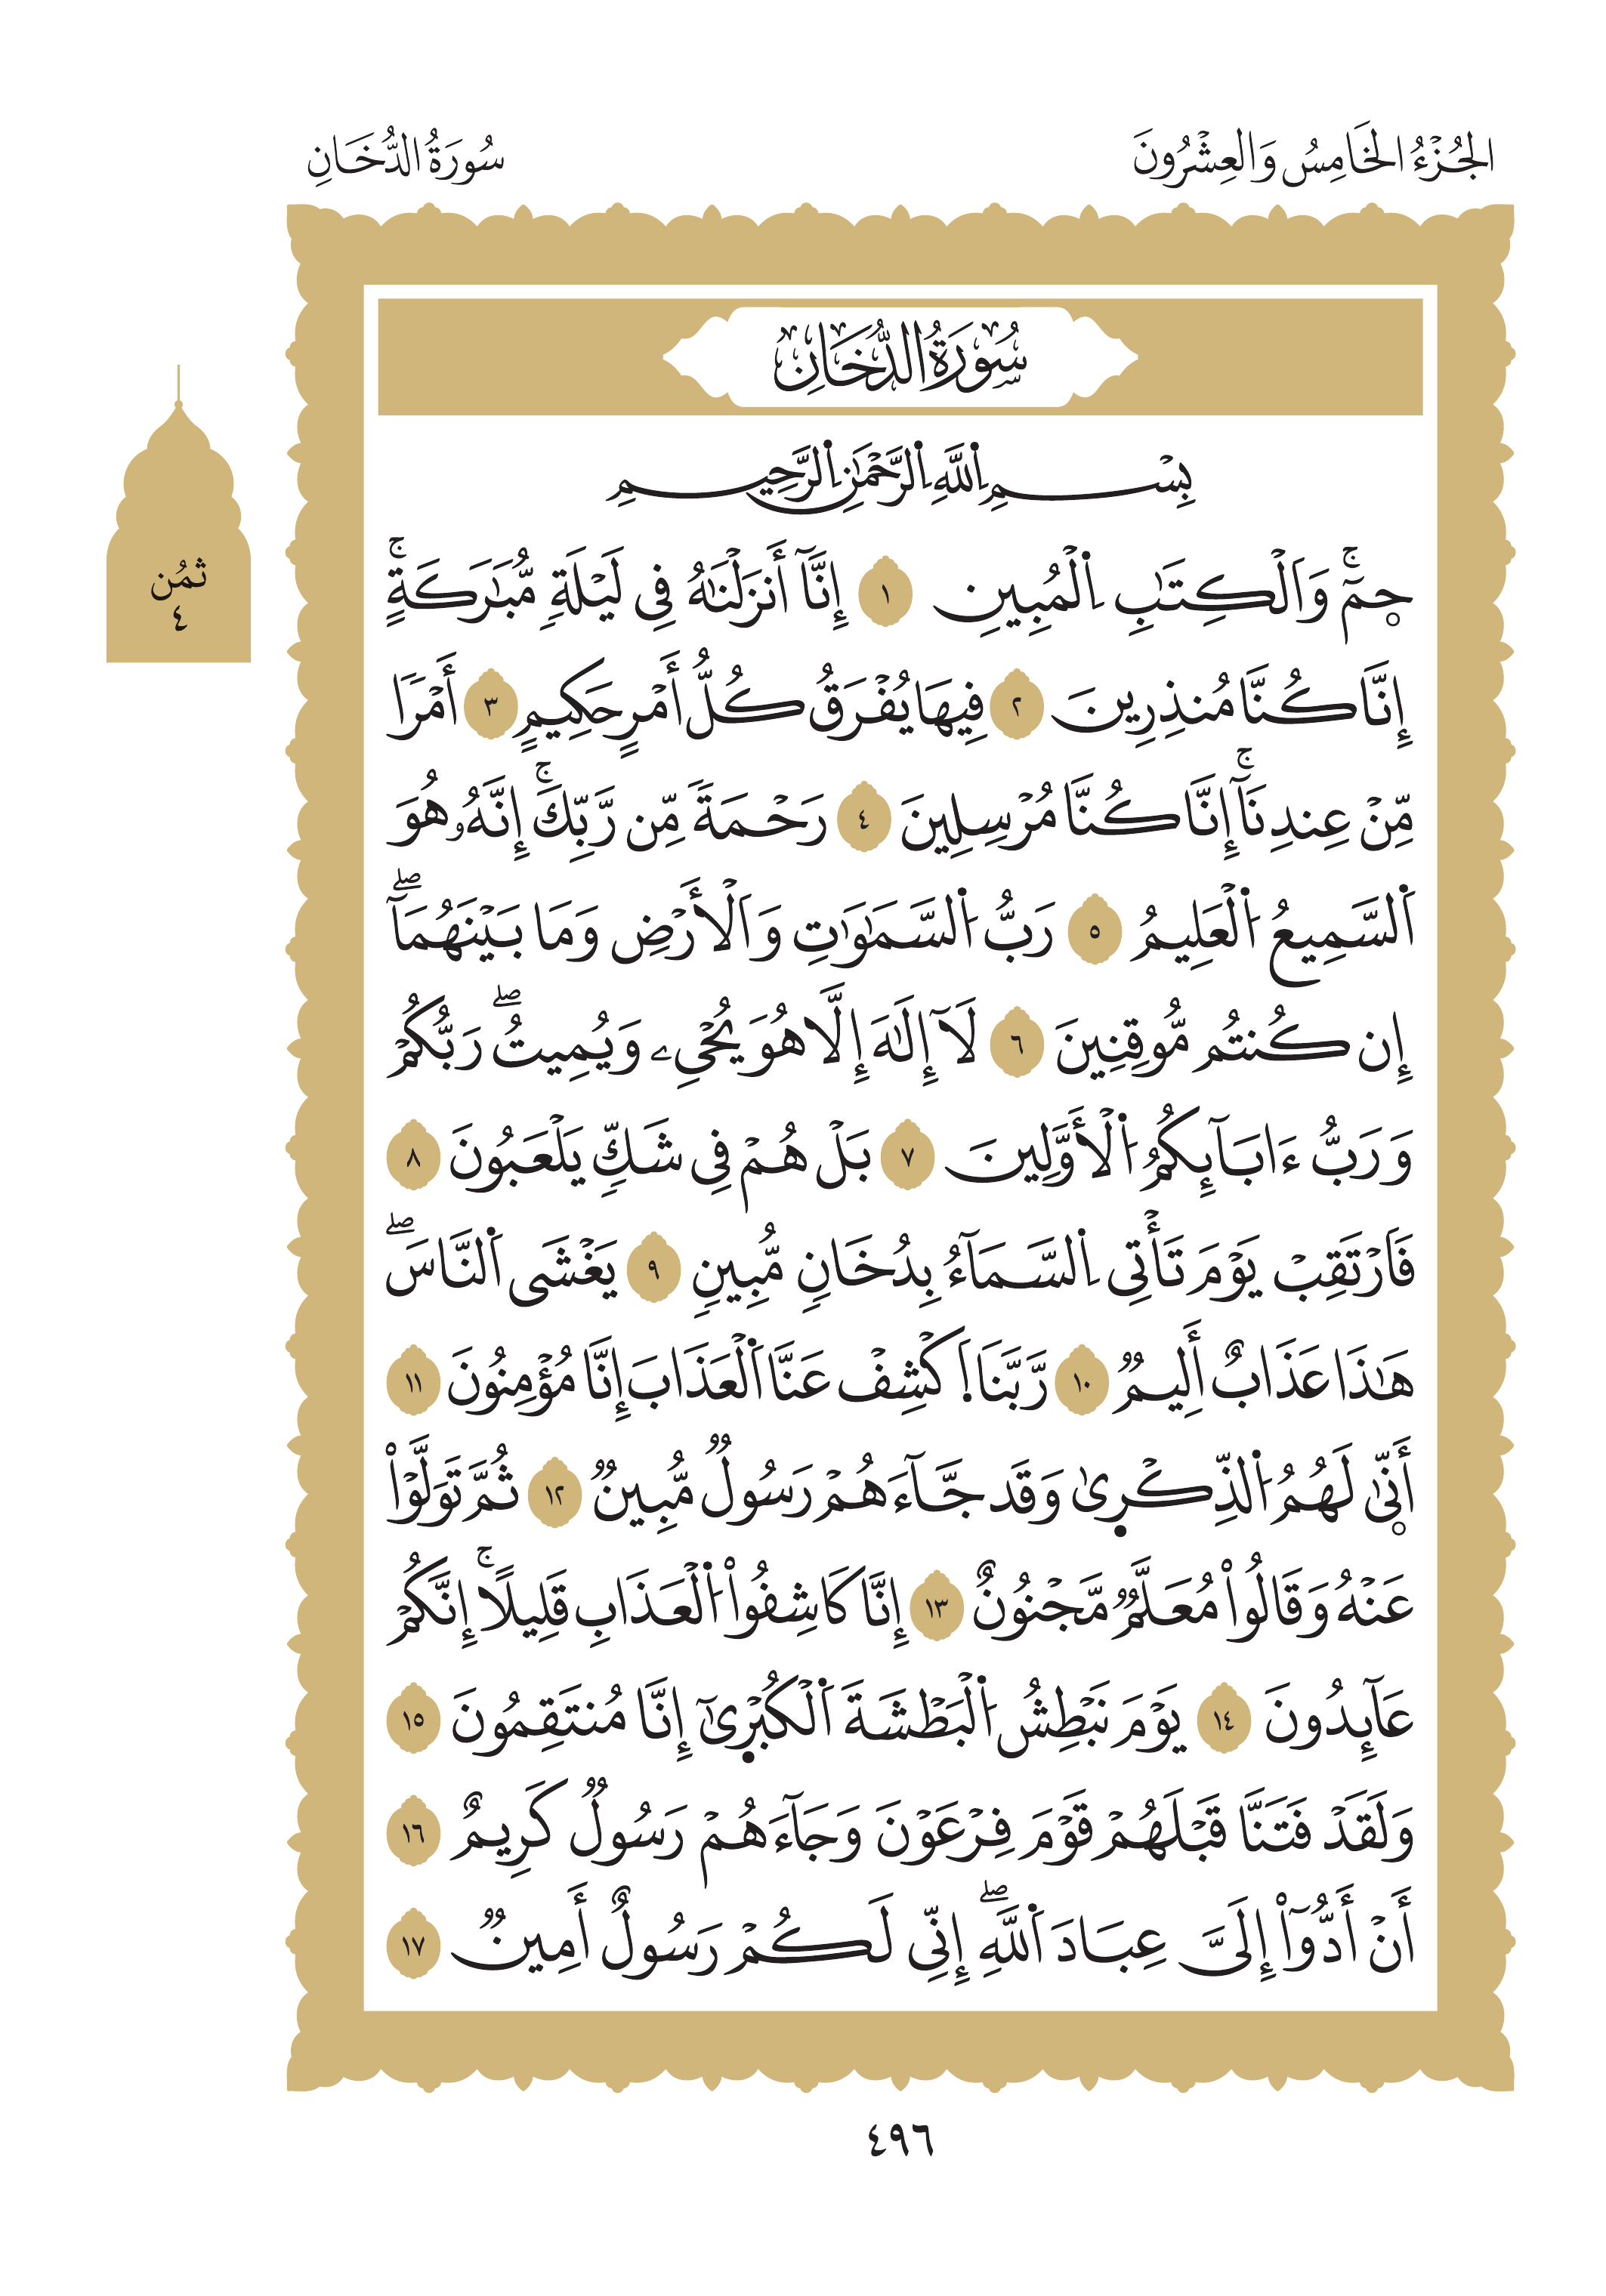 الجُزْءُ الخَامِسُ وَالعِشْرُونَ
سُورَةُ الدُّخَانِ
سُورَةُ الدُّخَانِ
ثمُن
٤
بِسْمِ اِ۬للَّهِ اِ۬لرَّحْمَٰنِ اِ۬لرَّحِيمِ
جمِٓۚ وَالْكِتَٰبِ اِ۬لْمُبِينِ ١ إِنَّآ أَنزَلْنَٰهُ فِى لَيْلَةٖ مُّبَٰرَكَةٍۚ
إِنَّا كُنَّا مُنذِرِينَ ٢ فِيهَا يُفْرَقُ كُلُّ أَمْرٍ حَكِيمٍ ٣ أَمْراٗ
مِّنْ عِندِنَآۚ إِنَّا كُنَّا مُرْسِلِينَ ٤ رَحْمَةٗ مِّن رَّبِّكَۚ إِنَّهُۥ هُوَ
اَ۬لسَّمِيعُ اُ۬لْعَلِيمُ ٥ رَبُّ اُ۬لسَّمَٰوَٰتِ وَالْأَرْضِ وَمَا بَيْنَهُمَآۖ
إِن كُنتُم مُّوقِنِينَ ٦ لَآ إِلَٰهَ إِلَّا هُوَ يُحْىِۦ وَيُمِيتُۖ رَبُّكُمْ
وَرَبُّ ءَابَآئِكُمُ اُ۬لْأَوَّلِينَ ٧ بَلْ هُمْ فِى شَكّٖ يَلْعَبُونَ ٨
فَارْتَقِبْ يَوْمَ تَأْتِى اِ۬لسَّمَآءُ بِدُخَانٖ مُّبِينٖ ٩ يَغْشَى اَ۬لنَّاسَۖ
هَٰذَا عَذَابٌ أَلِيمٞ ١٠ رَّبَّنَا اَ۪كْشِفْ عَنَّا اَ۬لْعَذَابَ إِنَّا مُؤْمِنُونَ ١١
أَنّ۪ىٰ لَهُمُ اُ۬لذِّكْر۪ىٰ وَقَد جَّآءَهُمْ رَسُولٞ مُّبِينٞ ١٢ ثُمَّ تَوَلَّوْاْ
عَنْهُ وَقَالُواْ مُعَلَّمٞ مَّجْنُونٌ ١٣ إِنَّا كَاشِفُواْ اُ۬لْعَذَابِ قَلِيلاًۚ إِنَّكُمْ
عَآئِدُونَ ١٤ يَوْمَ نَبْطِشُ اُ۬لْبَطْشَةَ اَ۬لْكُبْر۪ىٰٓ إِنَّا مُنتَقِمُونَ ١٥
وَلَقَدْ فَتَنَّا قَبْلَهُمْ قَوْمَ فِرْعَوْنَ وَجَآءَهُمْ رَسُولٞ كَرِيمٌ ١٦
أَنْ أَدُّوٓاْ إِلَىَّ عِبَادَ اَ۬للَّهِۖ إِنِّى لَكُمْ رَسُولٌ أَمِينٞ ١٧
٤٩٦